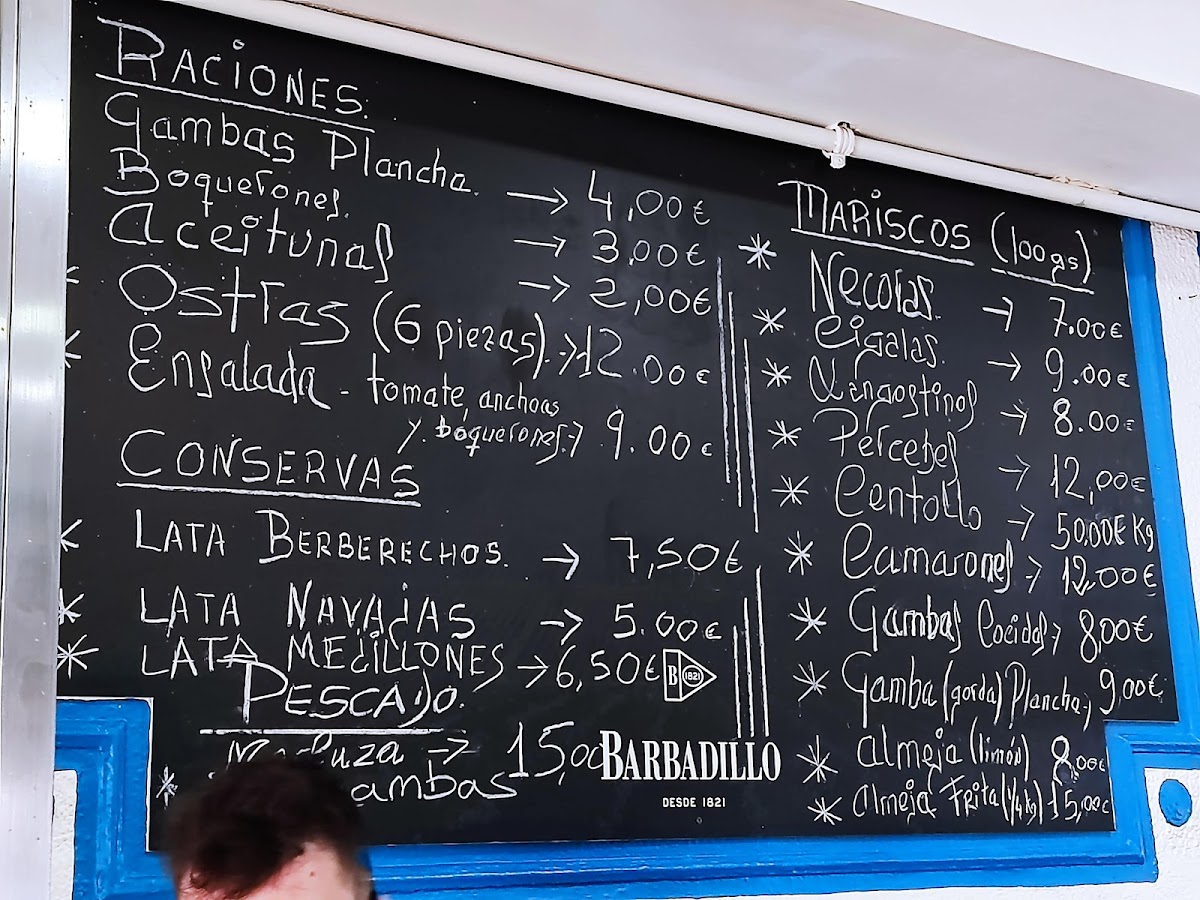 RACIONES.
Gambas Plancha. → 4,00€
Boquerones. → 3,00€
Aceitunas → 2,00€
Ostras (6 piezas). → 12.00€
Ensalada - tomate, anchoas
y boquerones. → 9.00€
CONSERVAS
* LATA BERBERECHOS. → 7,50€
* LATA NAVAJAS → 5.00€
* LATA MEJILLONES → 6,50€
PESCADO.
→ 15,00
*
MARISCOS (100gs)
* Necoras. → 7.00€
* Cigalas. → 9.00€
* Langostinos → 8.00€
* Percebes → 12,00€
* Centollo → 50,00€ Kg
* Camarones → 12,00€
* Gambas Cocidas → 8,00€
* Gamba (gorda) Plancha → 9,00€
* almeja (limón) 8,00€
* almeja Frita (1/4 kg) 15,00€
B 1821
BARBADILLO
DESDE 1821